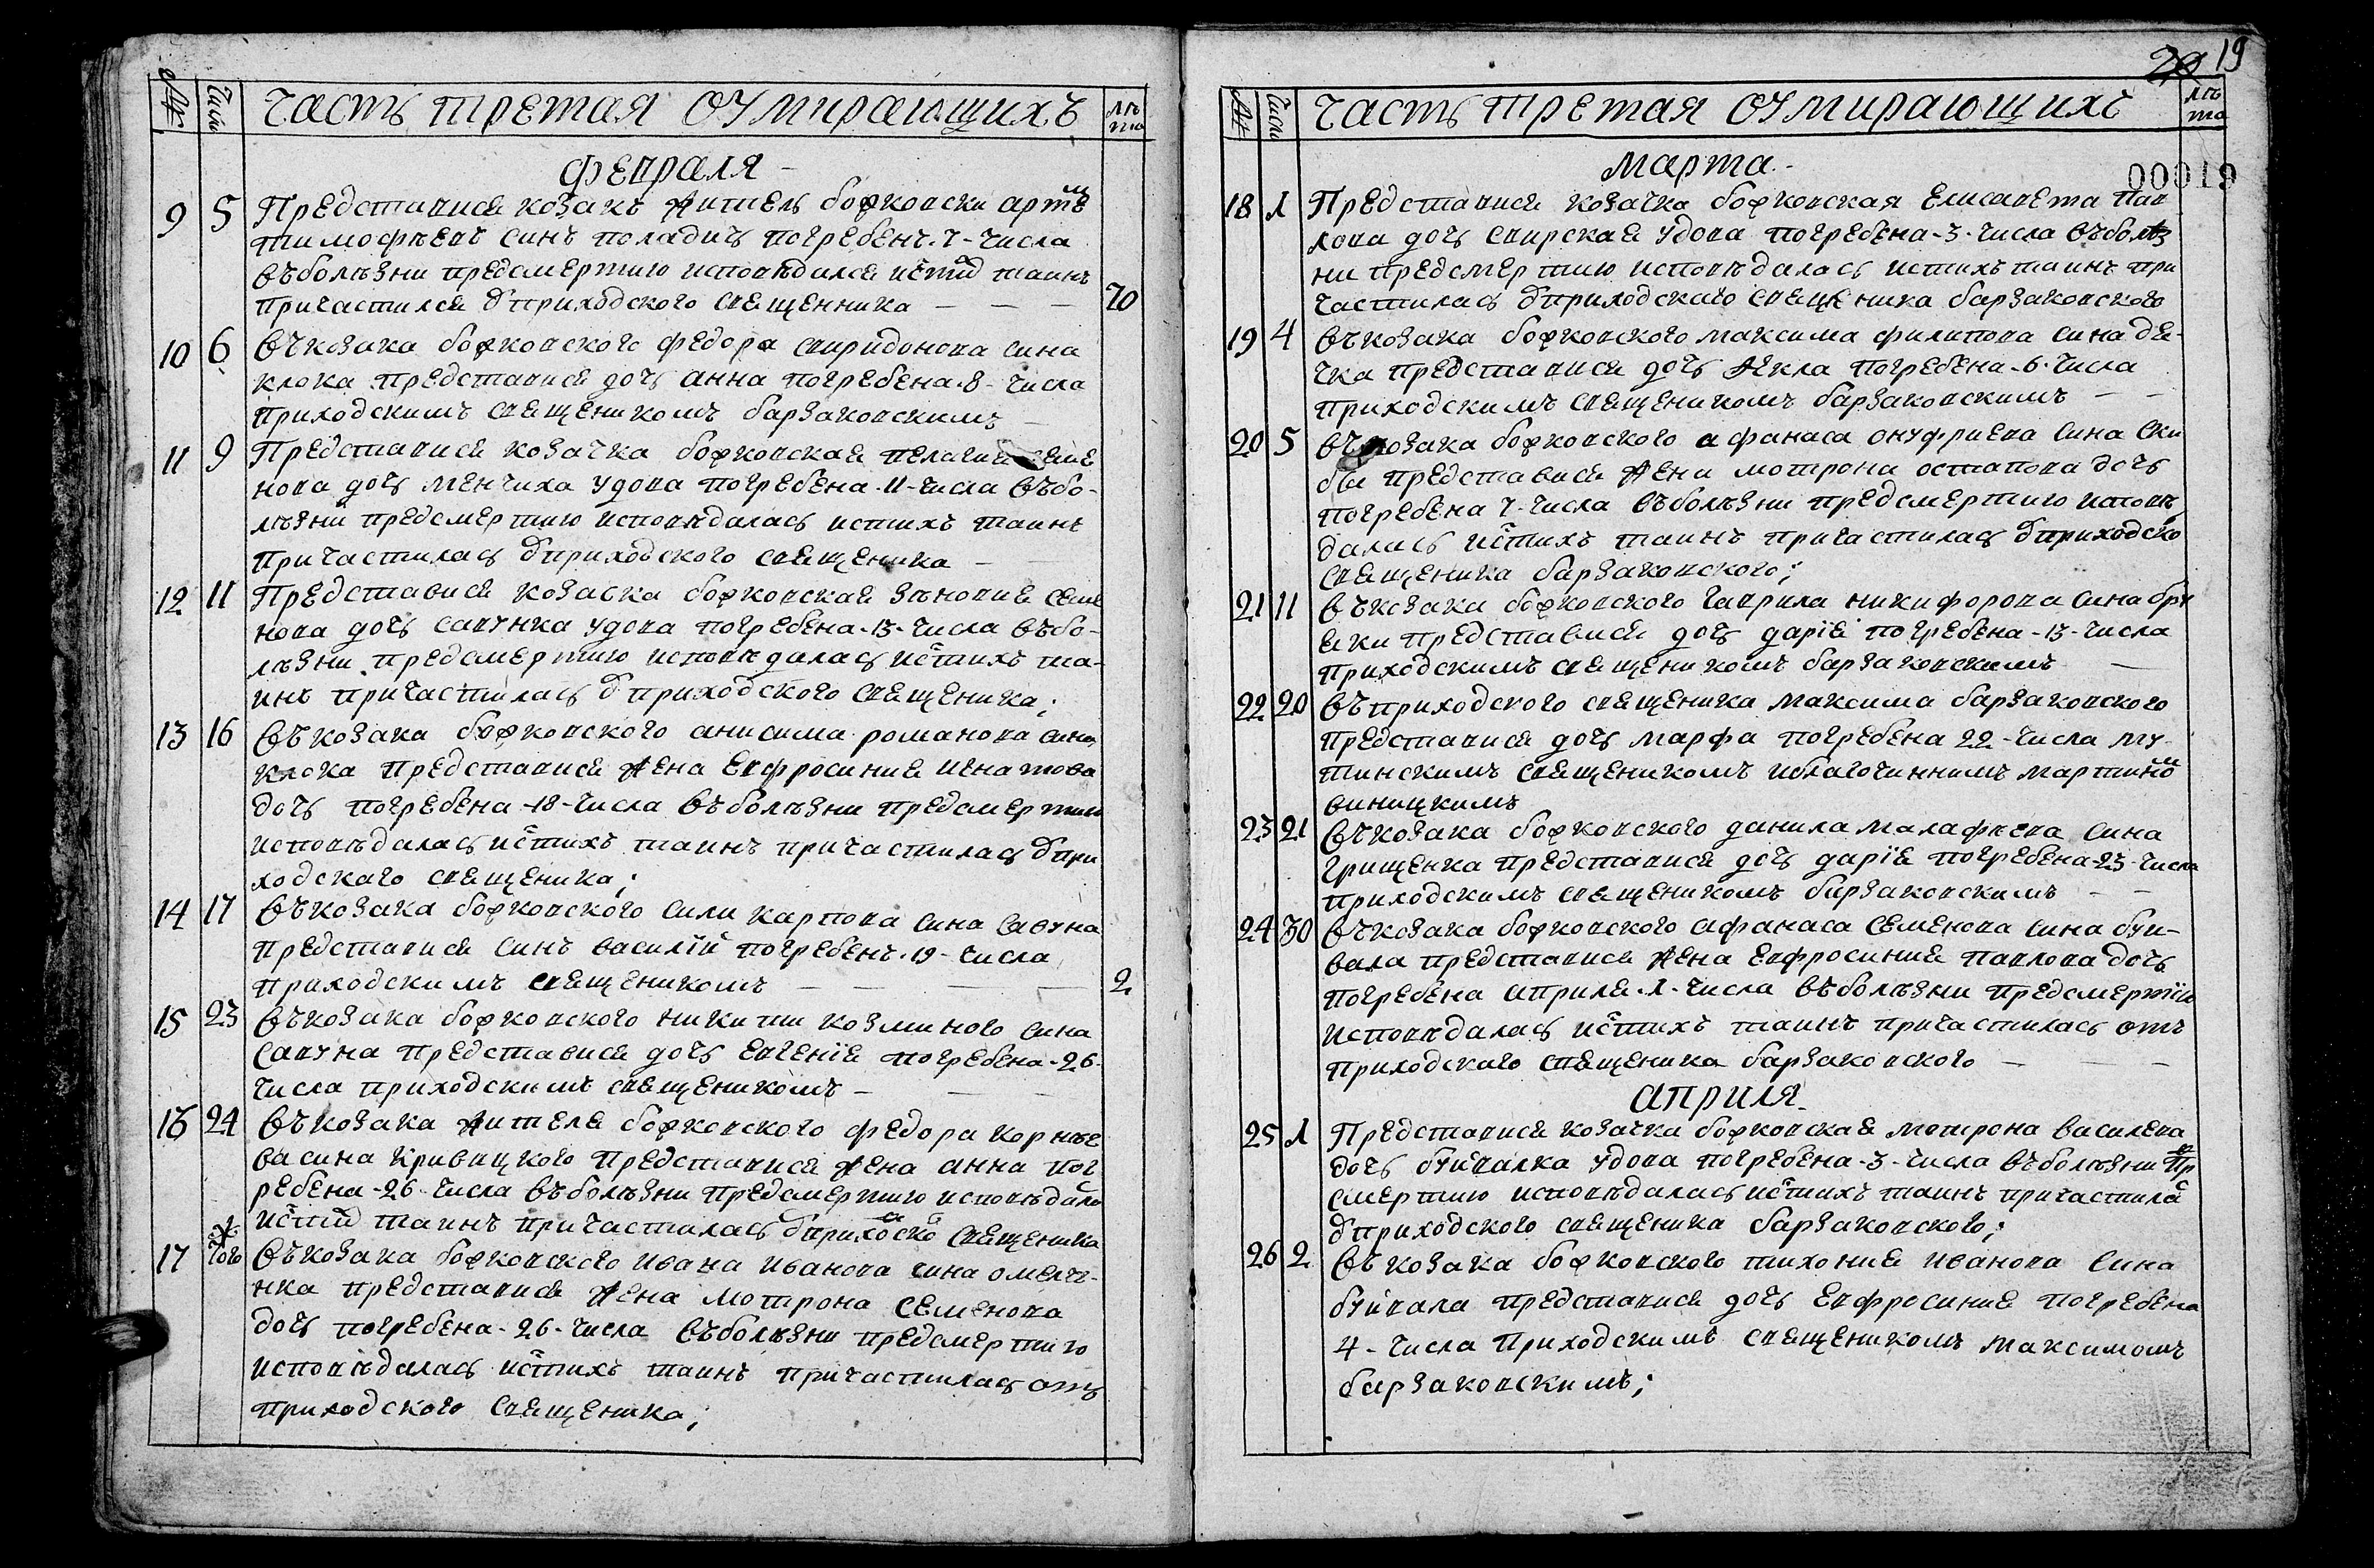 № Числа Часть третая оумирающихъ лѣта
Февраля
9 5 Представися козакъ житель божковски артем
тимофѣевъ синъ поладичъ погребенъ 7 числа
въболѣзни предсмертию исповѣдался истй таинъ
причастился ѿприходского священника 70
10 6 Въкозака божковского федора свиридонова сина
клока представися дочъ анна погребена 8 числа
приходскимъ священикомъ барзаковскимъ
11 9 Представися козачка божковская пелагия семе
нова дочъ менчиха удова погребена 11 числа въбо-
лѣзни предсмертию исповѣдалась истихъ таинъ
причастилась ѿприходского священика
12 11 Представися козачка божковская зѣновия семе
нова дочъ савунка удова погребена 13 числа въбо-
лѣзни предсмертию исповѣдалась истихъ та-
инъ причастилась ѿприходского священика;
13 16 Въкозака божковского анисима романова сина
клока представися жена евфросиния игнатова
дочъ погребена 18 числа въболѣзни предсмертию
исповѣдалась истихъ таинъ причастилась ѿпри
ходскаго священика;
14 17 Въкозака божковского сили карпова сина савуна
представися синъ василій погребенъ 19 числа
приходскимъ священикомъ 2
15 23 Въкозака божковского никити козминого сина
савуна представися дочъ евгенія погребена 26
числа приходскимъ священикомъ
16 24 Въкозака жителя божковского федора корнѣе
ва сина кривицкого представися жена анна пог
ребена 26 числа въболѣзни предсмертию исповѣдалас
истій таинъ причастилась ѿприходско священика
17 того ж Въкозака божковского ивана иванова сина омелче-
нка представися жена мотрона семенова
дочъ погребена 26 числа въболѣзни предсмертию
исповѣдалась истихъ таинъ причастилась отъ
приходского священика;
20 19
№ Числа Часть третая оумирающихъ лѣта
Марта
00019
18 1 Представися козачка божковская елисавета пав
лова дочъ свирская удова погребена 3 числа въболѣз
ни предсмертию исповѣдалась истихъ таинъ при
частилась ѿприходскаго священика барзаковского
19 4 Въкозака божковского максима филипова сина дя-
чка представися дочъ Ѳекла погребена 6 числа
приходскимъ священикомъ барзаковскимъ
20 5 Въкозака божковского афанаса онуфриева сина ски
би представися жена мотрона остапова дочъ
погребена 7 числа въболѣзни предсмертию исповѣ
далась истихъ таинъ причастилась ѿприходско
священика барзаковского;
21 11 Въкозака божковского гаврила никифорова сина бру
яки представися дочъ дарія погребена 13 числа
приходскимъ священикомъ барзаковскимъ
22 20 Въприходского священика максима барзаковского
представися дочъ марфа погребена 22 числа му-
тинскимъ священикомъ иблагочиннимъ мартином
виницкимъ
23 21 Въкозака божковского данила малафѣева сина
грищенка представися дочъ дарія погребена 23 числа
приходскимъ священикомъ барзаковскимъ
24 30 Въкозака божковского афанаса семенова сина буи-
вала представися жена евфросиния павлова дочъ
погребена априля 1 числа въболѣзни предсмертію
исповѣдалась истихъ таинъ причастилась отъ
приходскаго священика барзаковского
Априля
25 1 Представися козачка божковская мотрона василева
дочъ буйвалка удова погребена 3 числа въболѣзни пред
смертию исповѣдалась истихъ таинъ причастилас
ѿприходского священика барзаковского;
26 2 Въкозака божковского тихония иванова сина
буйвала представися дочъ евфросиния погребена
4 числа приходскимъ священикомъ максимомъ
барзаковскимъ;